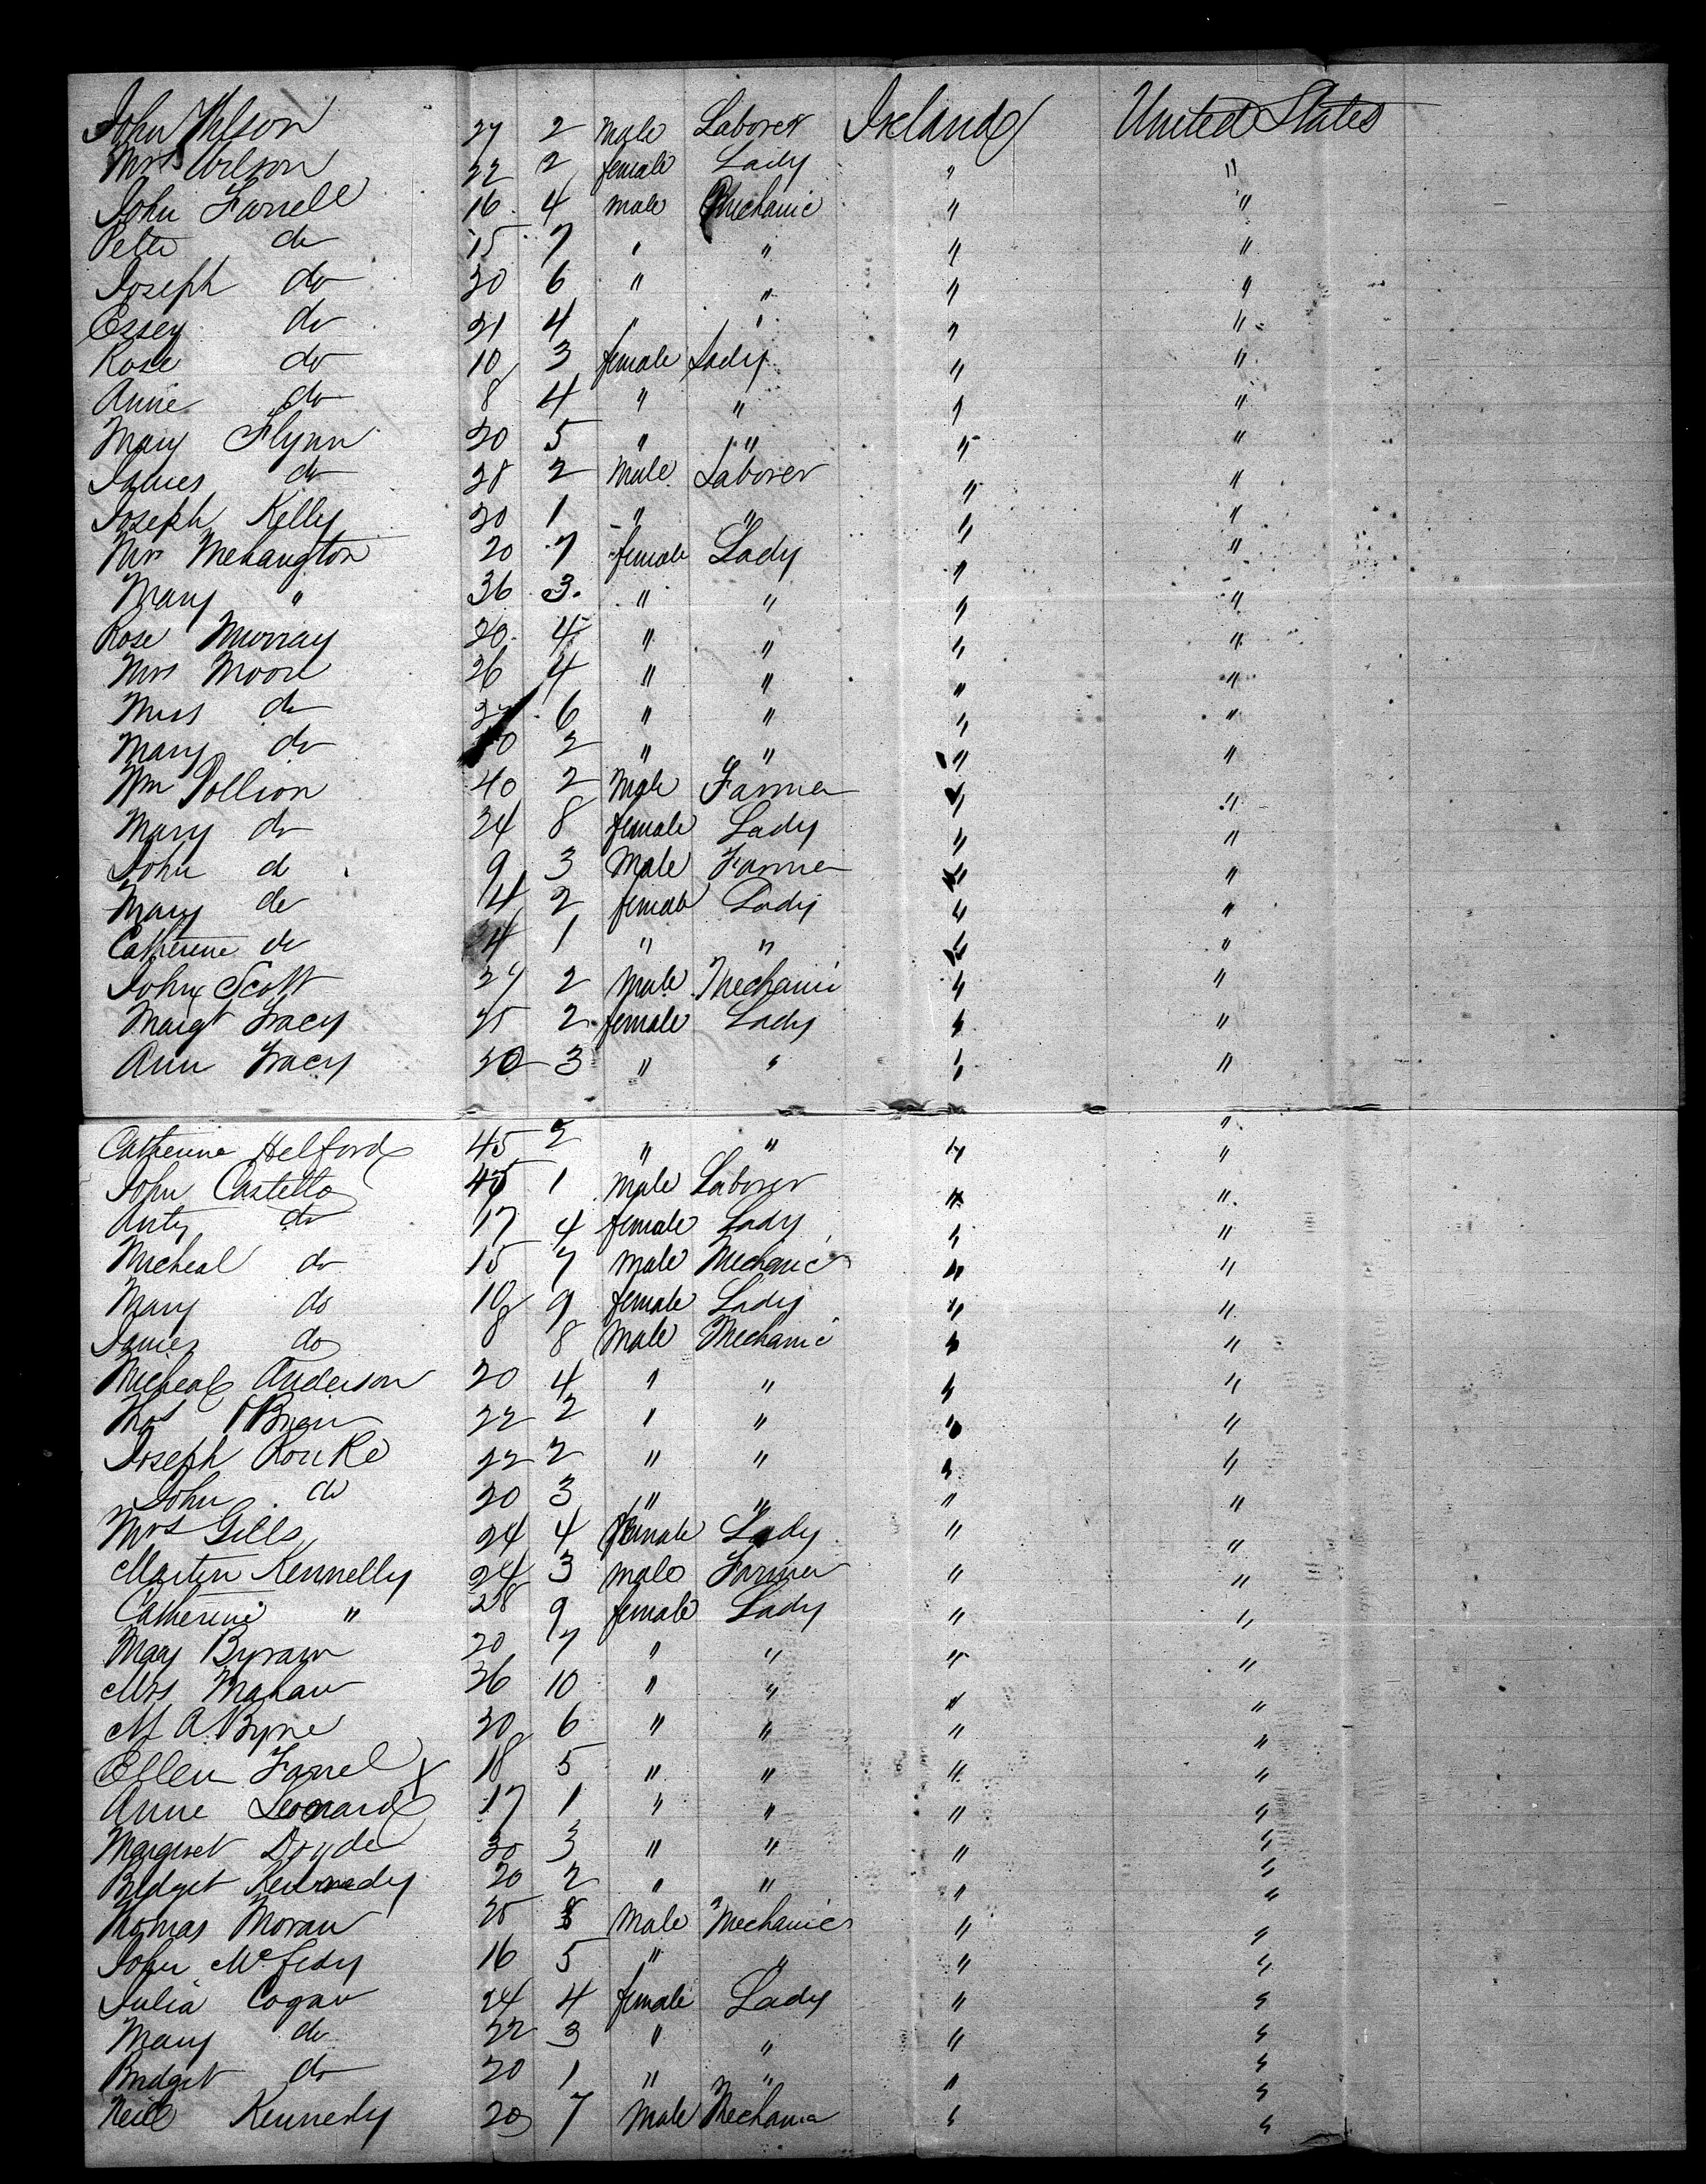 John Wilson 27 2 Male Laborer Ireland United States
Mrs Wilson 22 2 female Lady " "
John Farrell 16 4 male Mechanic " "
Peter do 15 7 " " " "
Joseph do 20 6 " " " "
Essey do 21 4 " " " "
Rose do 10 3 female Lady " "
Anne do 8 4 " " " "
Mary Flynn 20 5 " " " "
James do 28 2 Male Laborer " "
Joseph Kelly 30 1 " " " "
Mrs 20 7 female Lady " "
Mary " 36 3 " " " "
Rose Murray 20 4 " " " "
Mrs Moore 26 4 " " " "
Miss do 6 " " " "
Mary do 2 " " " "
Wm Pollion 40 2 Male Farmer " "
Mary do 34 8 female Lady " "
John do 9 3 Male Farmer " "
Mary do 14 2 female Lady " "
Catherine do 4 1 " " " "
John Scott 24 2 male Mechanic " "
Margt Tracy 25 2 female Lady " "
Ann Tracy 20 3 " " " "
Catherine Helford 45 2 " " " "
John Costello 45 1 male Laborer " "
Anty do 17 4 female Lady " "
Micheal do 15 7 male Mechanic " "
Mary do 10 9 female Lady " "
James do 8 8 Male Mechanic " "
Micheal Anderson 20 4 " " " "
Thos OBrien 22 2 " " " "
Joseph Rourke 22 2 " " " "
John do 20 3 " " " "
Mrs Gills 24 4 female Lady " "
Martin Kennelly 24 3 male Farmer " "
Catherine " 28 9 female Lady " "
Mary 20 7 " " " "
Mrs Mahan 36 10 " " " "
M A Byrne 30 6 " " " "
Ellen Farrel x 18 5 " " " "
Anne Leonard 17 1 " " " "
Margret 30 3 " " " "
Bridget Kennedy 20 2 " " " "
Thomas Moran 25 8 Male Mechanic " "
John 16 5 " " " "
Julia Cogan 24 4 female Lady " "
Mary do 22 3 " " " "
Bridget do 20 1 " " " "
Neill Kennedy 20 7 Male Mechanic " "